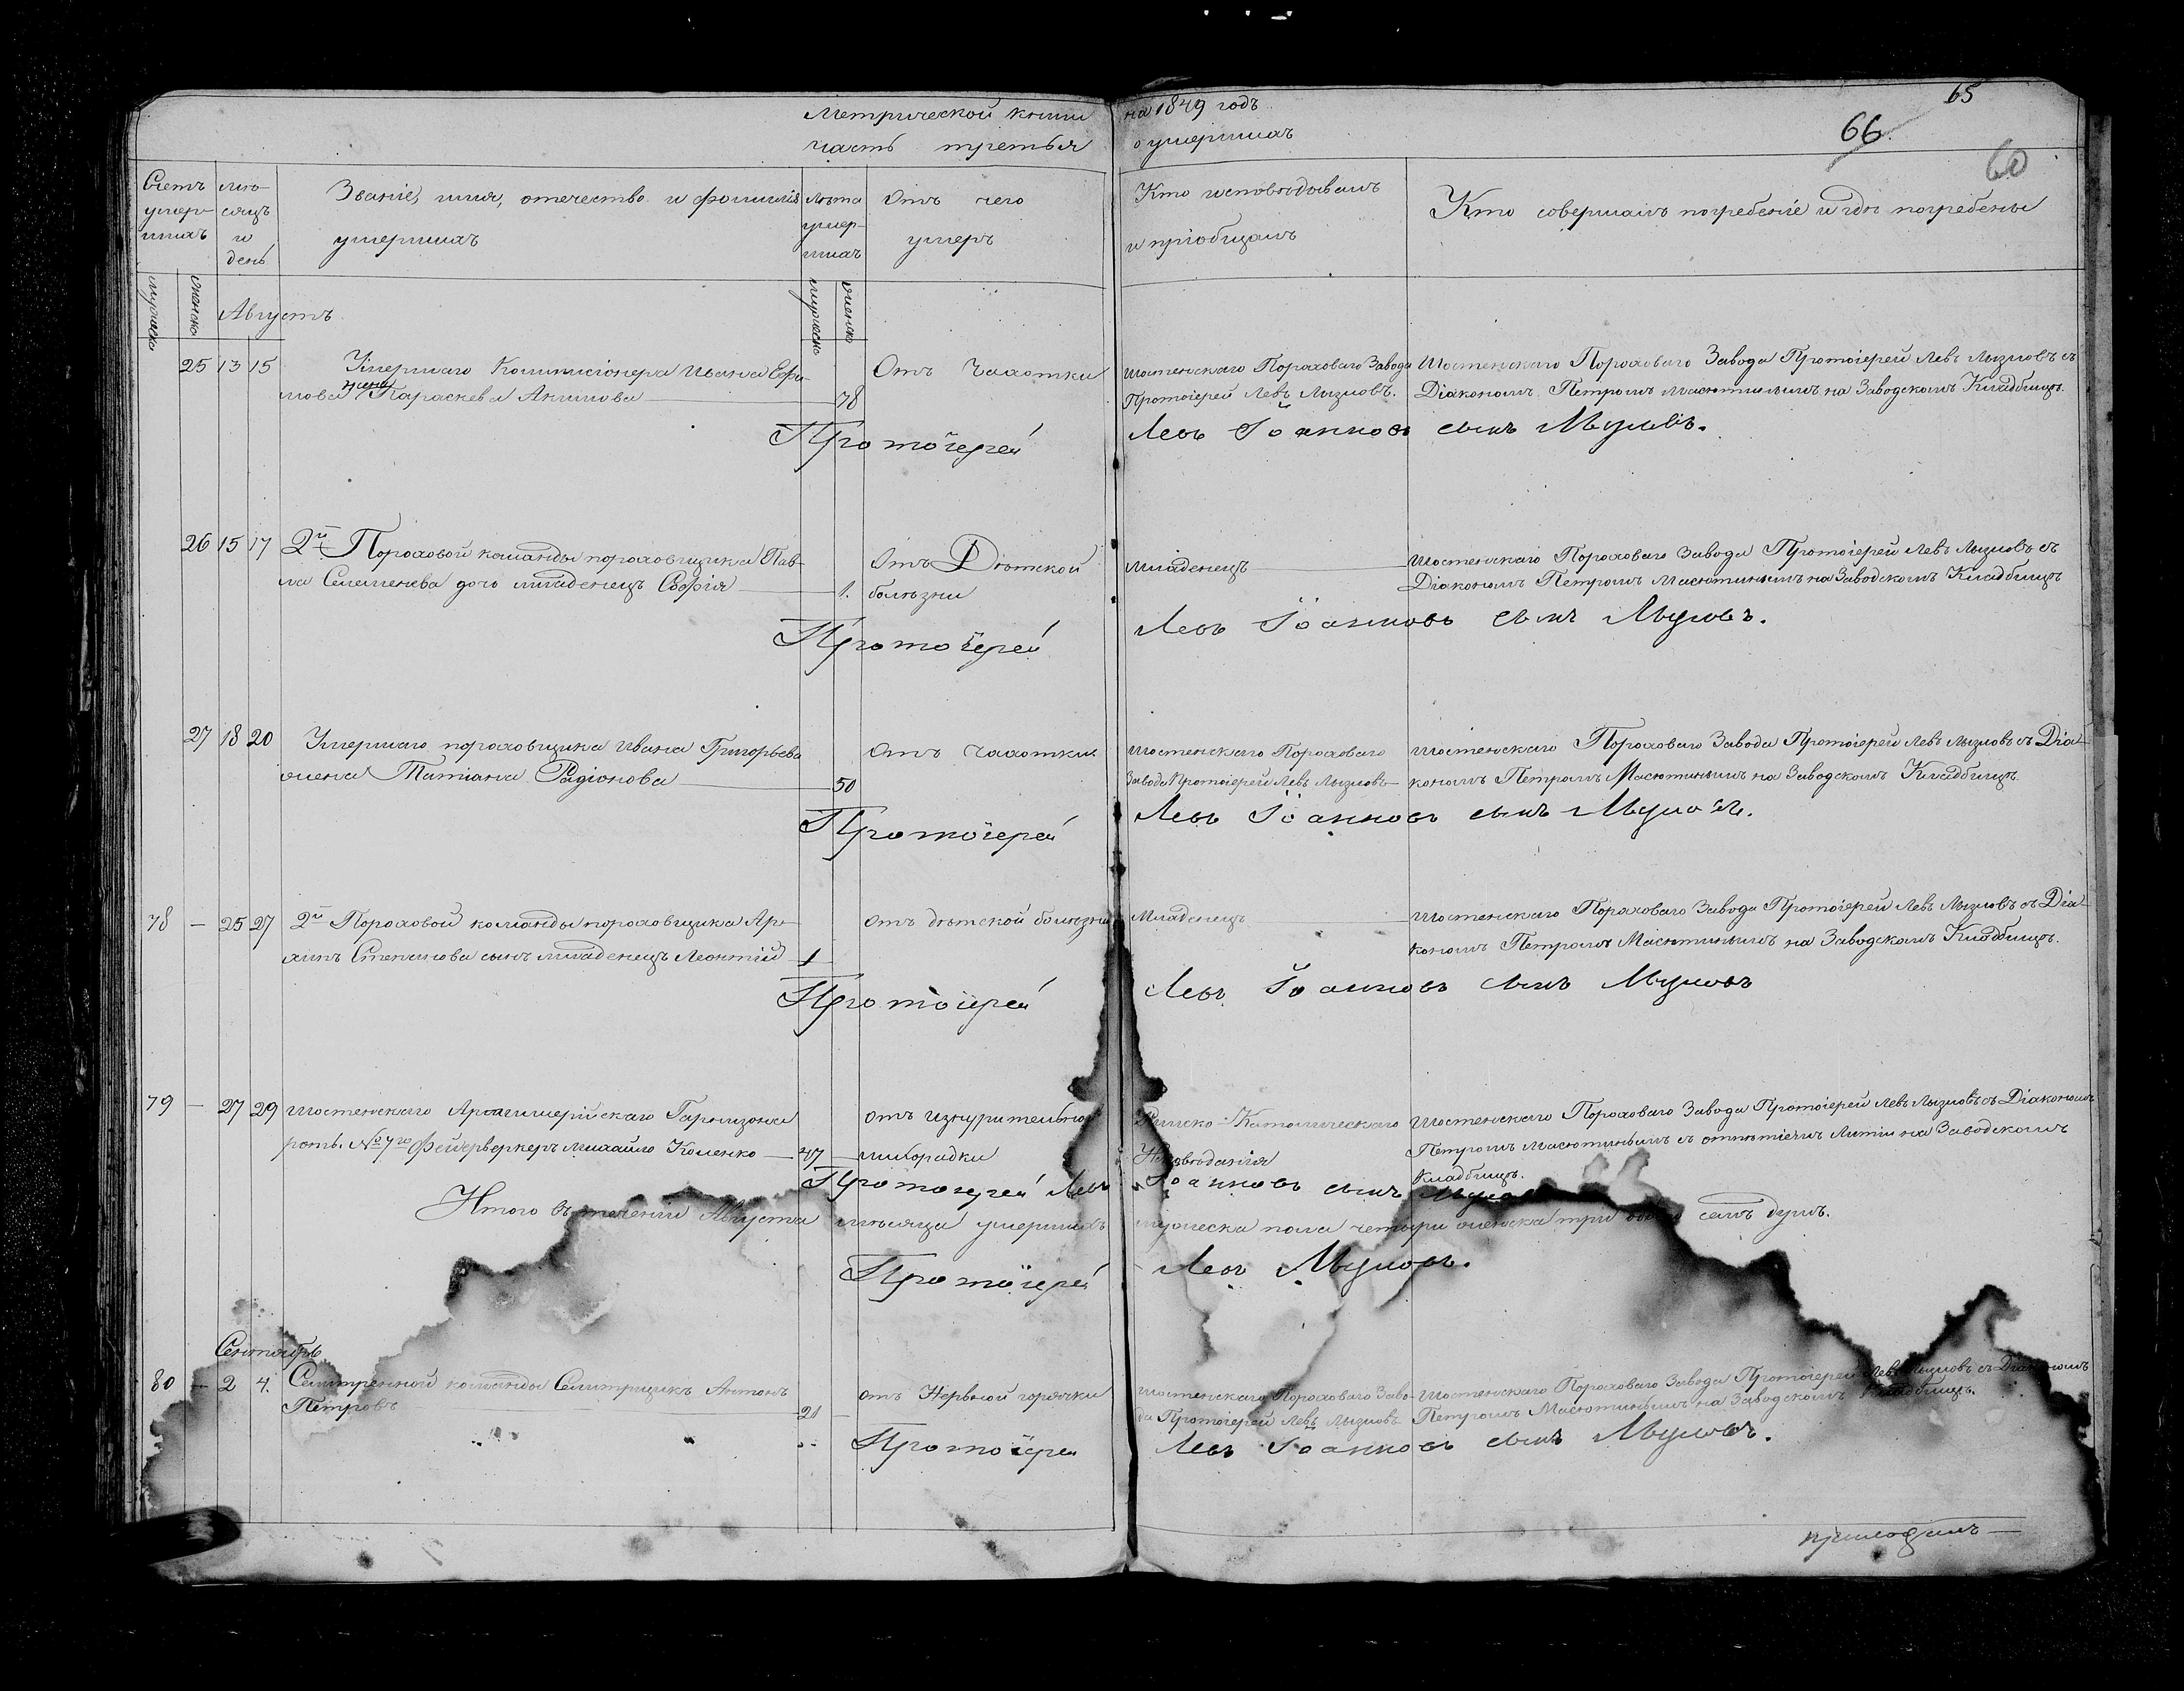 Метрической книги на 1849 годъ
часть третья о умершихъ
65
66.
60
Счетъ умершихъ
мѣсяцъ и день
Званіе, имя, отечество и фамилія умершихъ
Лѣта умершихъ
Отъ чего умеръ
Кто исповѣдывалъ и пріобщалъ
Кто совершалъ погребеніе и гдѣ погребены
мужеска
женска
мужеска
женска
Августъ
25 13 15 Умершаго Коммисіонера Ивана Ефи- Отъ Чахотки Шостенскаго Пороховаго Завода Шостенскаго Пороховаго Завода Протоіерей Левъ съ
мова жена Параскева Акимова 78 Протоіерей Левъ Діакономъ Петромъ Масютинымъ на Заводскомъ Кладбищѣ.
Протоіерей Левъ Іоанновъ сынъ
26 15 17 2й Пороховой команды пороховщика Пав- Отъ Дѣтской младенецъ Шостенскаго Пороховаго Завода Протоіерей Левъ съ
ла Семенова дочь младенецъ Софія 1. болѣзни Діакономъ Петромъ Масютинымъ на Заводскомъ Кладбищѣ
Протоіерей Левъ Іоанновъ сынъ
27 18 20 Умершаго пороховщика Ивана Григорьева Отъ Чахотки Шостенскаго Пороховаго Шостенскаго Пороховаго Завода Протоіерей Левъ съ Діа-
жена Татіана Радіонова 50 Завода Протоіерей Левъ кономъ Петромъ Масютинымъ на Заводскомъ Кладбищѣ.
Протоіерей Левъ Іоанновъ сынъ
78 – 25 27 2й Пороховой команды пороховщика Ар- отъ дѣтской болѣзни Младенецъ Шостенскаго Пороховаго Завода Протоіерей Левъ съ Діа-
Степанова сынъ младенецъ Леонтій 1 кономъ Петромъ Масютинымъ на Заводскомъ Кладбищѣ.
Протоіерей Левъ Іоанновъ сынъ
79 – 27 29 Шостенскаго Артиллерійскаго Гарнизона отъ изнурительной Римско-Католическаго Шостенскаго Пороховаго Завода Протоіерей Левъ съ Діакономъ
роты № 7го Фейерверкеръ Михайло 47 лихорадки Исповѣданія Петромъ Масютинымъ съ отпѣтіемъ Литіи на Заводскомъ
Кладбищѣ.
Протоіерей Левъ Іоанновъ сынъ
Итого въ теченіи Августа мѣсяца умершихъ мужеска пола четыри женска три семъ душъ.
Протоіерей Левъ
Сентябрь
80 – 2 4. Селитренной команды Селитрщикъ Антонъ отъ Нервной горячки Шостенскаго Пороховаго Заво- Шостенскаго Пороховаго Завода Протоіерей Левъ съ Діакономъ
Петровъ 21 да Протоіерей Левъ Петромъ Масютинымъ на Заводскомъ Кладбищѣ.
Протоіерей Левъ Іоанновъ сынъ